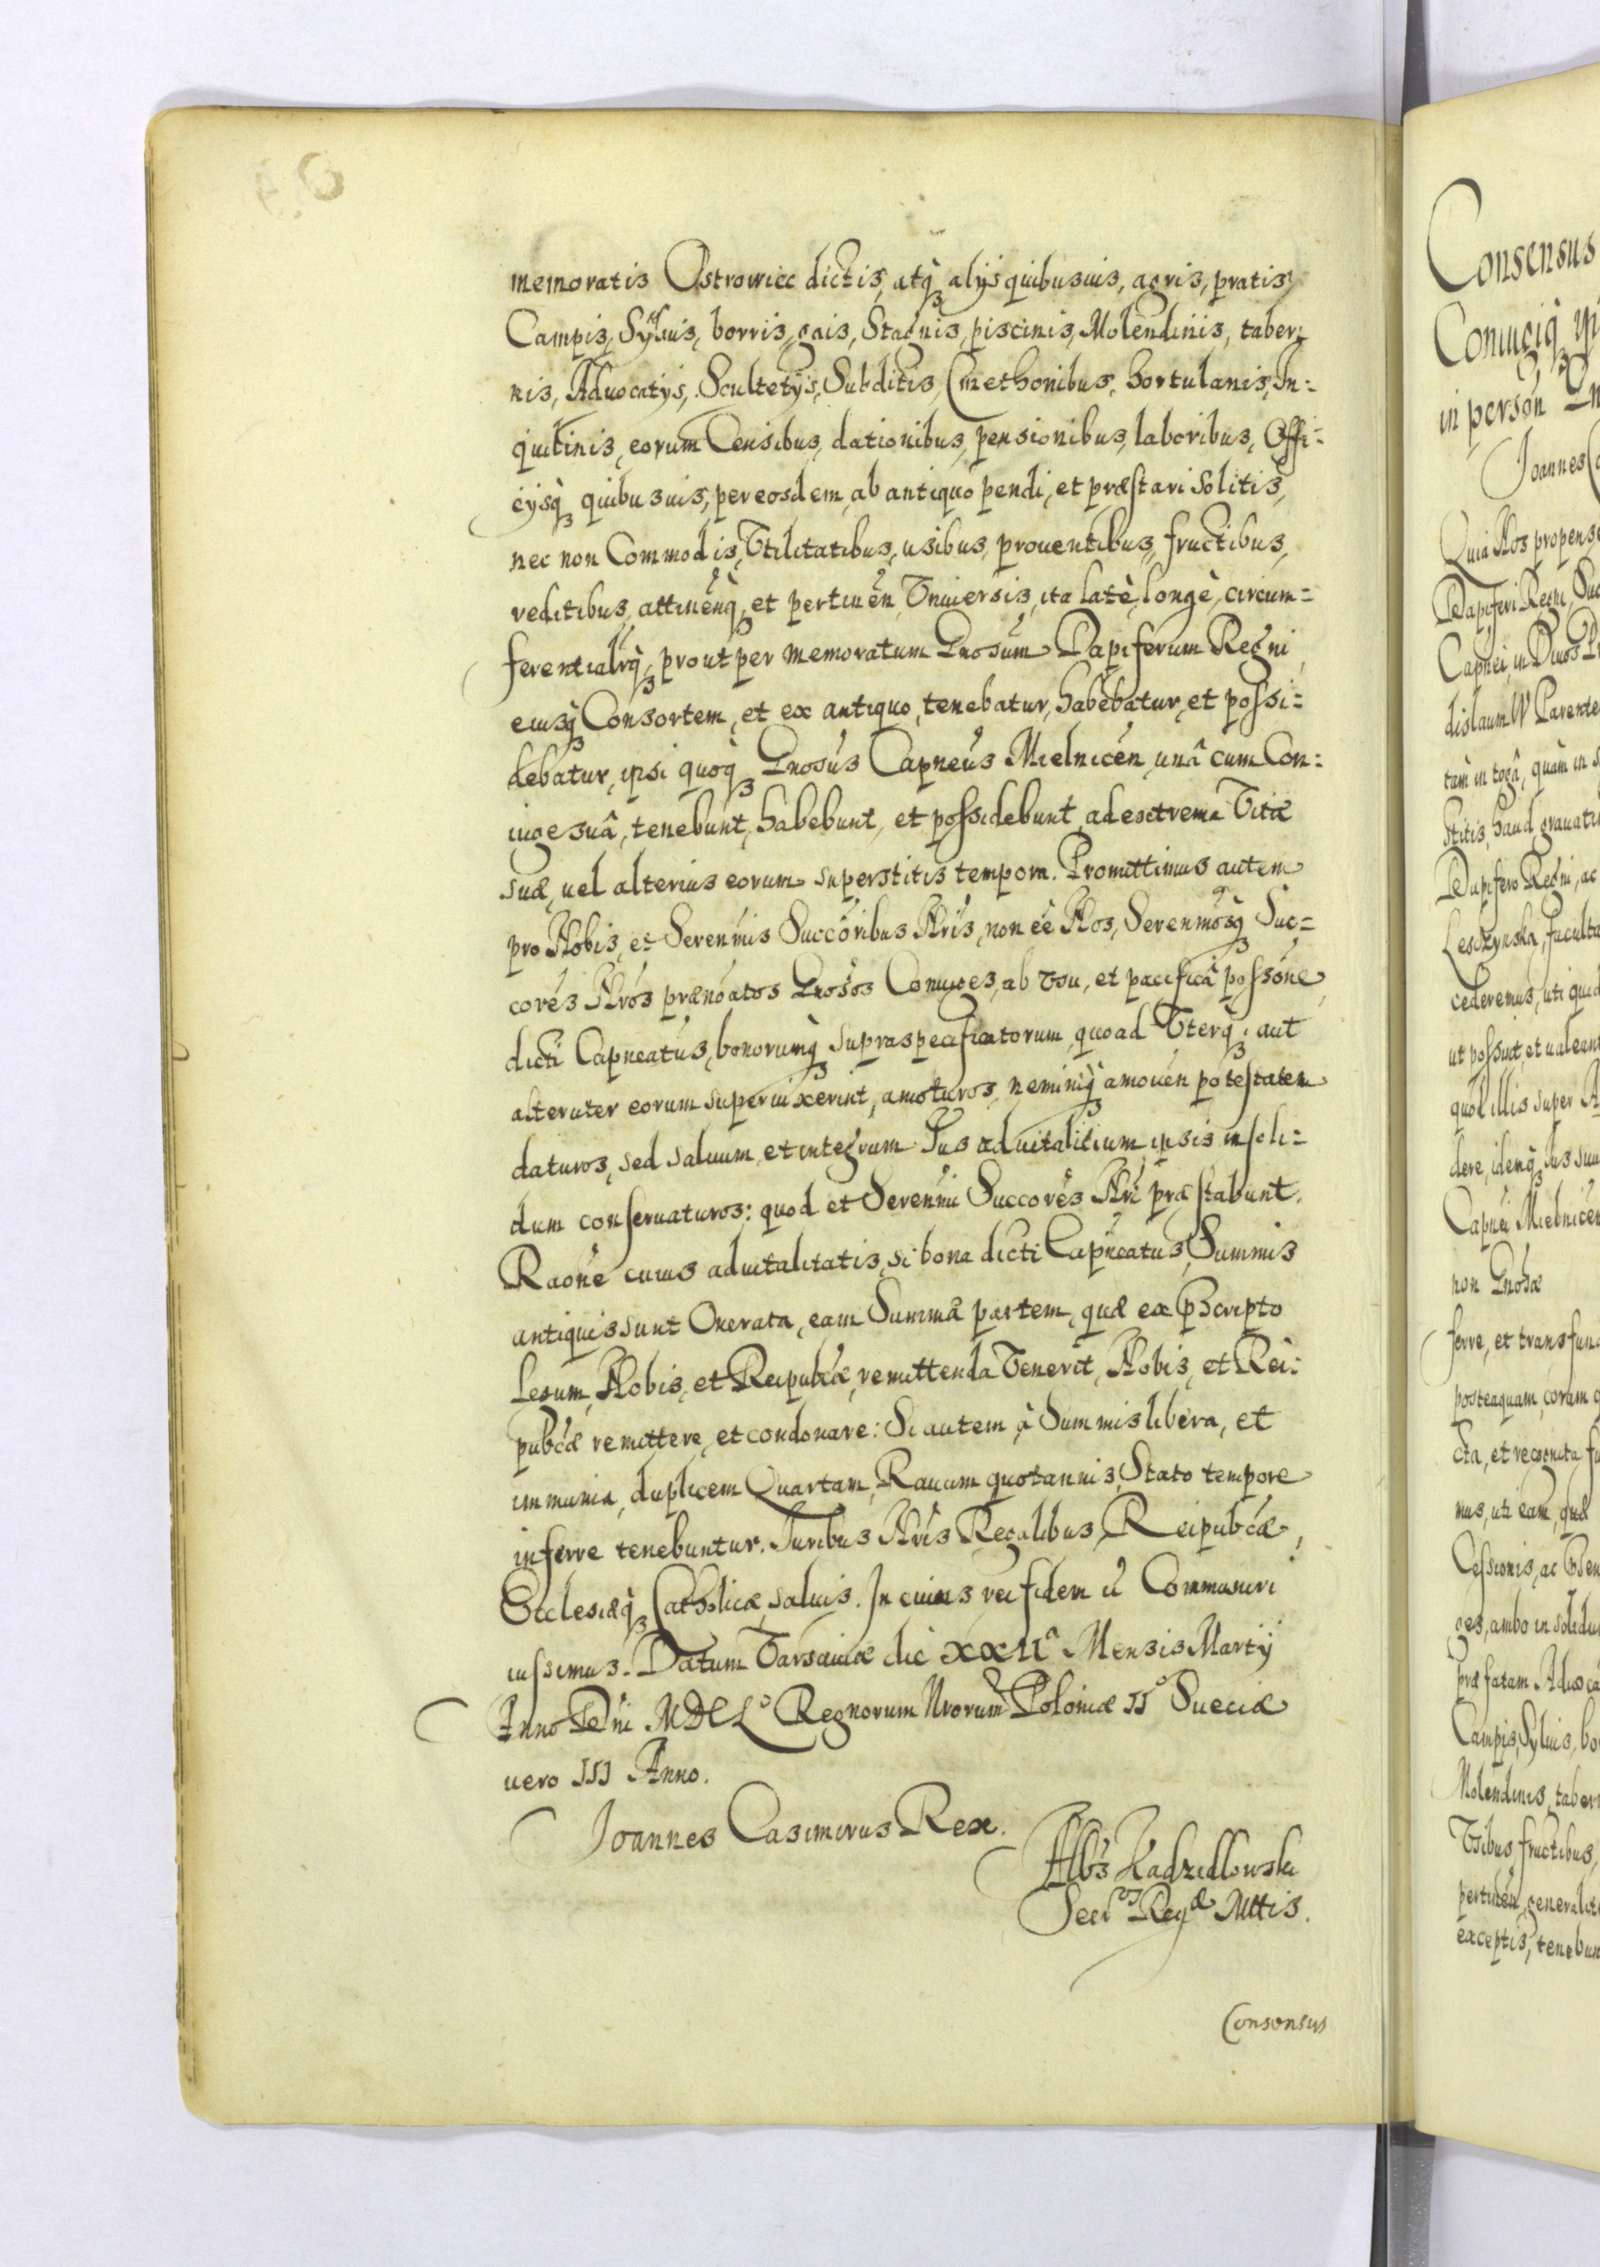 memoratis Ostrowiec dictis, atq₃ alijs quibusuis, agris, pratis,
Campis, Syluis, borris, gais, Stagnis, piscinis, Molendinis, taber:
nis, Aduocatijs, Scultetijs, Subditis, Cmethonibus, hortulanis, In:
quilinis, eorum Censibus, dationibus, pensionibus, laboribus, Offi:
cijsq₃ quibusuis, per eosdem, ab antiquo pendi, et præstari solitis,
nec non Commodis, Vtilitatibus, usibus, prouentibus, fructibus,
reditibus, attinen̄q₃, et pertinen̄ Vniuersis, ita latè, longè, circum:
ferentialr̄q₃, prout per memoratum Gnosum Dapiferum Regni
eiusq₃ Consortem, et ex antiquo, tenebatur, habebatur, et possi:
debatur, ipsi quoq₃ Gnosus Capneus Mielnicen̄ unâ cum Con:
iuge suâ, tenebunt, habebunt, et possidebunt, ad extrema Vitæ
suæ, uel alterius eorum superstitis tempora. Promittimus autem
pro Nobis, et Serenmis Succoribus Nris, non ee Nos, Serenmosq₃ Suc:
cores Nros prænoatos Gnosos Coniuges, ab vsu, et pacificâ possone
dicti Capneatus, bonorumq₃ supraspecificatorum, quoad Vterq₃, aut
alteruter eorum superuixerint, amoturos, neminiq₃ amouen̄ potestatem
daturos, sed saluum, et integrum Ius aduitalitium, ipsis in soli:
dum conseruaturos: quod et Serenmi Succores Nri præstabunt.
Raone cuius aduitalitatis, si bona dicti Capneatus, Summis
antiquis sunt Onerata, eam Summæ partem, quæ ex pscripto
Legum, Nobis, et Reipubcæ, remittenda Venerit, Nobis, et Rei:
pubcæ remittere, et condonare: Si autem à Summis libera, et
immunia, duplicem Quartam, Rauam quotannis, Stato tempore
inferre tenebuntur. Iuribus Nris Regalibus, Reipubcæ,
Ecclesiæq₃ Catholicæ, saluis. In cuius rei fidem Communiri
iussimus. Datum Varsauiæ die XXIIᵃ Mensis Martij
Anno Dni MDCLº Regnorum Nrorum Poloniæ IIº Sueciæ
uero III Anno.
Joannes Casimirus Rex.
Albs Kadzidlowski
Secrus Regæ Mttis.
Consensus
Consensus
in person
Joannes
Quia Nos propens
Dapiferi Regni
dislaum
tàm in togâ, quàm in
Dapifero Regni, ac
Lesczynska, faculta
cederemus, uti quid
ut possint, et ualeant
quod illis super
Capnei Mielnicen
non Gnosæ
ferre, et transfun
posteaquam, coram
cta, et recognita
mus, uti eam, quæ
Cessionis, ac
ges, ambo in solidu
præfatam Aduoca
Campis, Syluis, bo
Molendinis, taber
Vsibus, fructibus,
pertinen̄, generalit
exceptis, tenebun